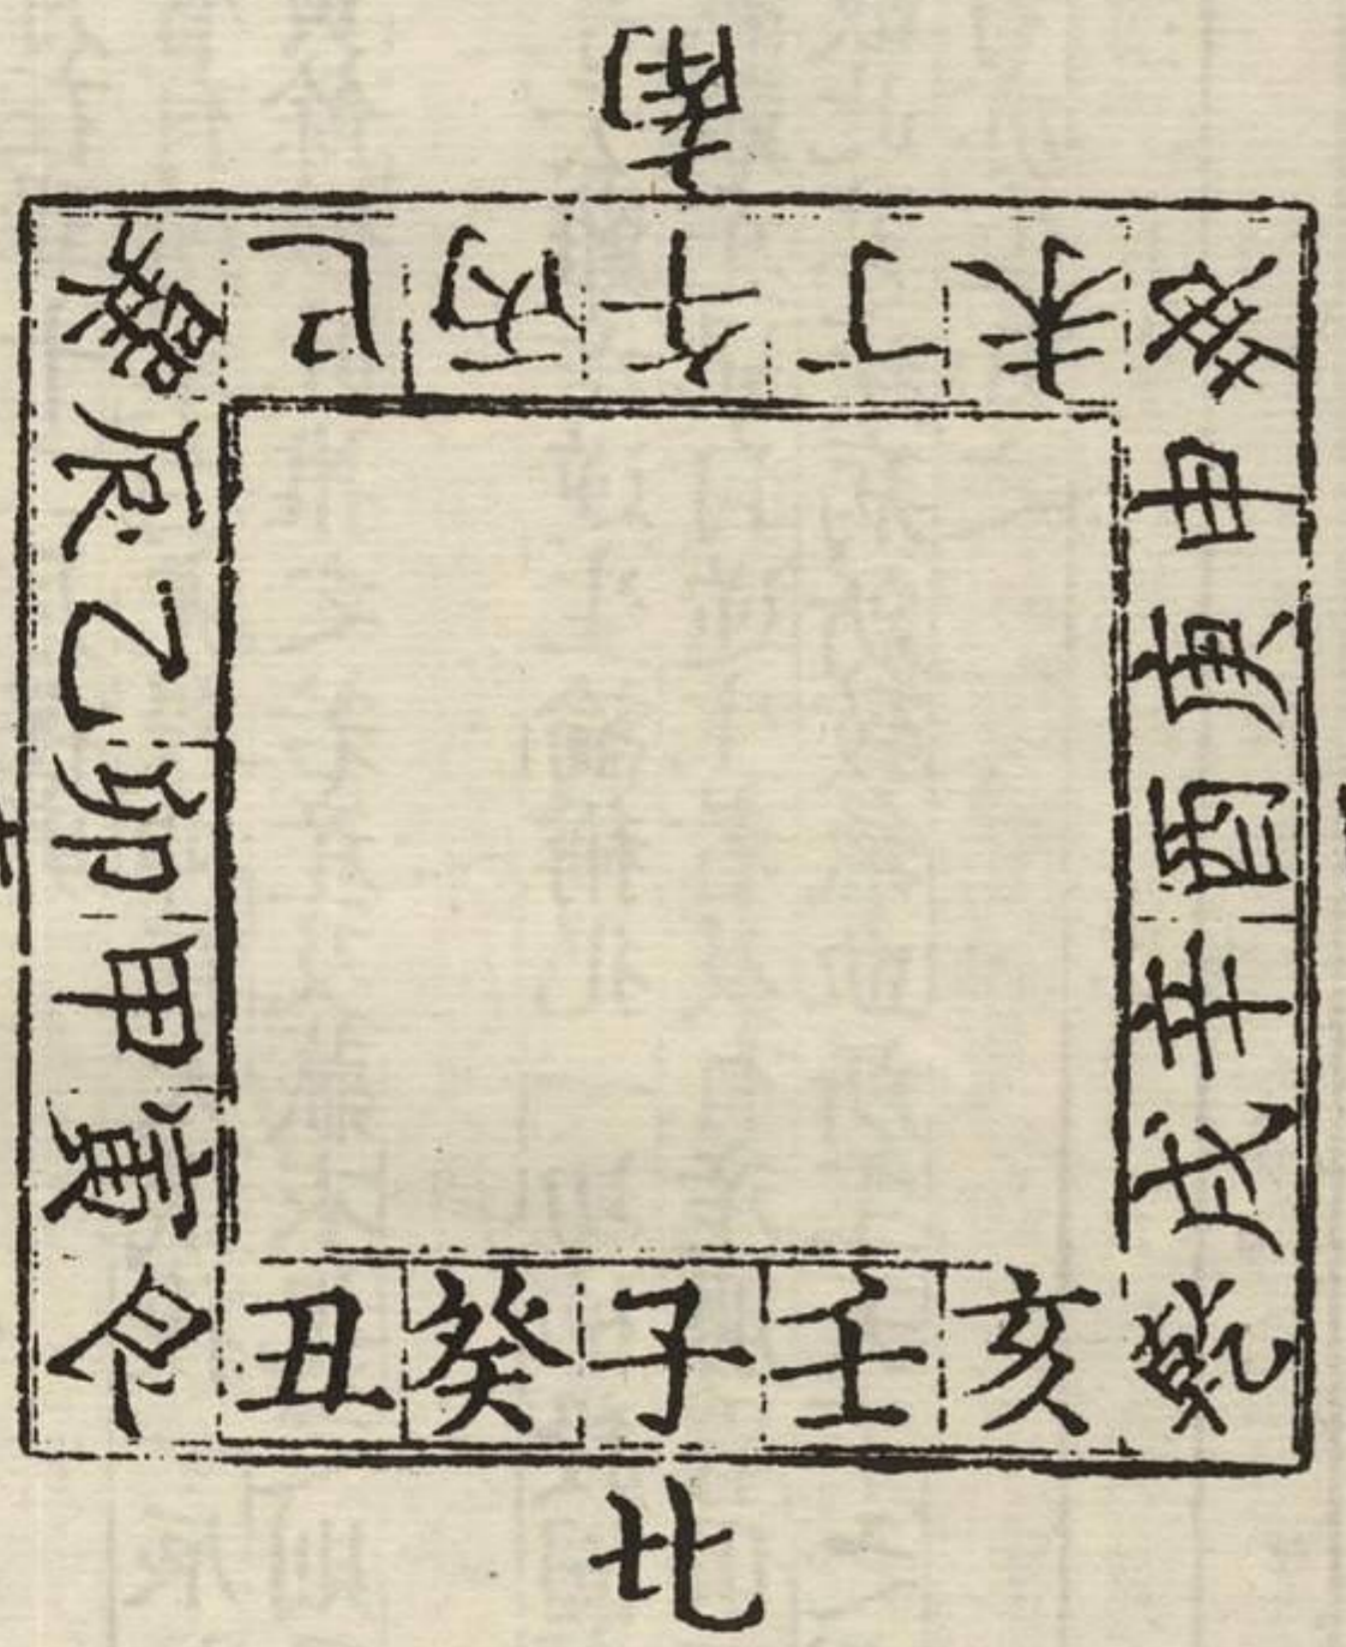 南
巽巳丙午丁未坤
申庚酉辛戌
乾亥壬子癸丑艮
寅甲卯乙辰
北